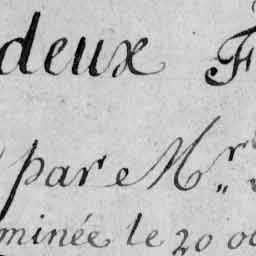 deux F
par Mr.
minée le 20 oc